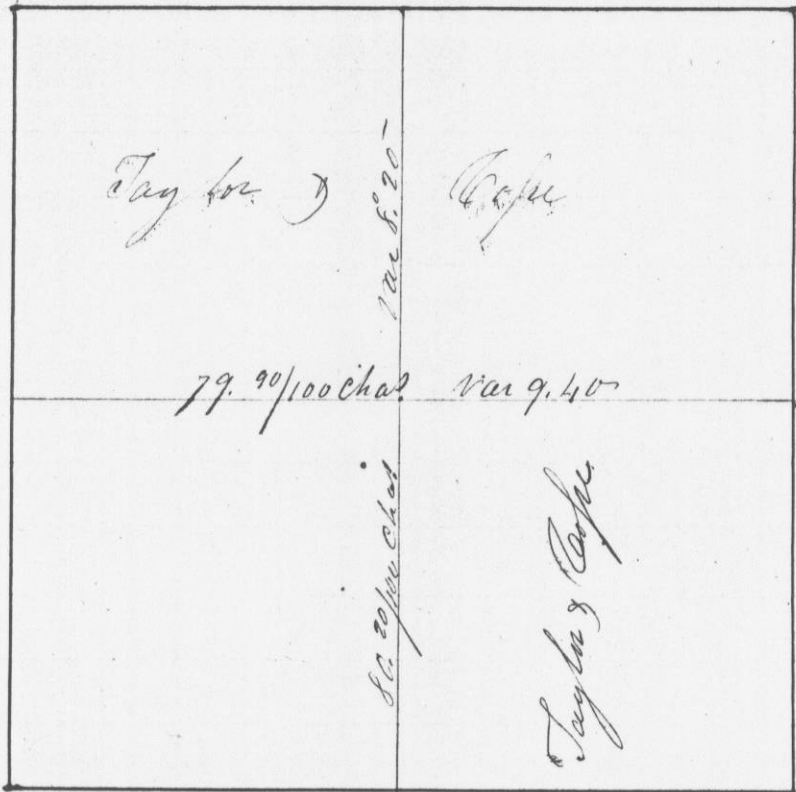 Taylor & Cope
var 8°.20'
79.90/100 chas var 9.40
80.20/100 chas
Taylor & Cope